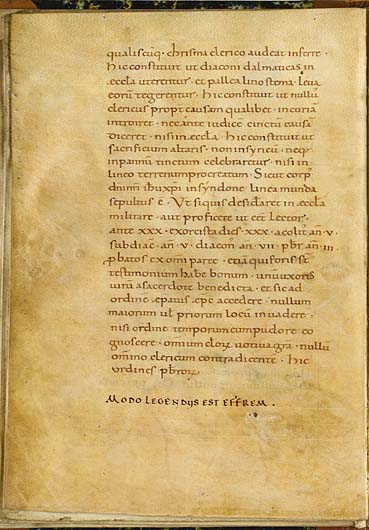 qualiscūq· chrisma clerico audeat inferre·
hic constituit ut diaconi dalmaticas in
æccła uterentur· et pallea linostema· leua
eorū tegerentur· hic constituit ut nullus
clericus propt causam qualibet· in curiā
introiret· nec ante iudicē cinctū causā
diceret· nisi in æccła hic constituit ut
sacrificium altaris· non in syricū· neq;
in pannū tinctum celebraretur· nisi in
lineo terreno procreatum· Sicut corp'
dnī nrī ihū xpi in syndone linea munda
sepultus ē· Ut siquis desideraret in æccła
militare· aut proficere ut eēt lector·
ante xxx· exorcista dies· xxx· acolit' an̄· v
subdiac· an̄· v· diacon' an̄· vii· pbr an̄· iii·
pbatos ex omi parte· etiā qui foris sī
testimonium habe bonum· unius uxoris
uirū a sacerdote benedicta· et sic ad
ordinē epatus epc accedere· nullum
maiorum ul priorum locū inuadere·
nisi ordine temporum cum pudore co
gnoscere· omium cleroꝝ uotiua gra· nullū
omino clericum contradicente· hic
ordines pbroꝝ·
MODO LEGENDUS EST EFFREM·